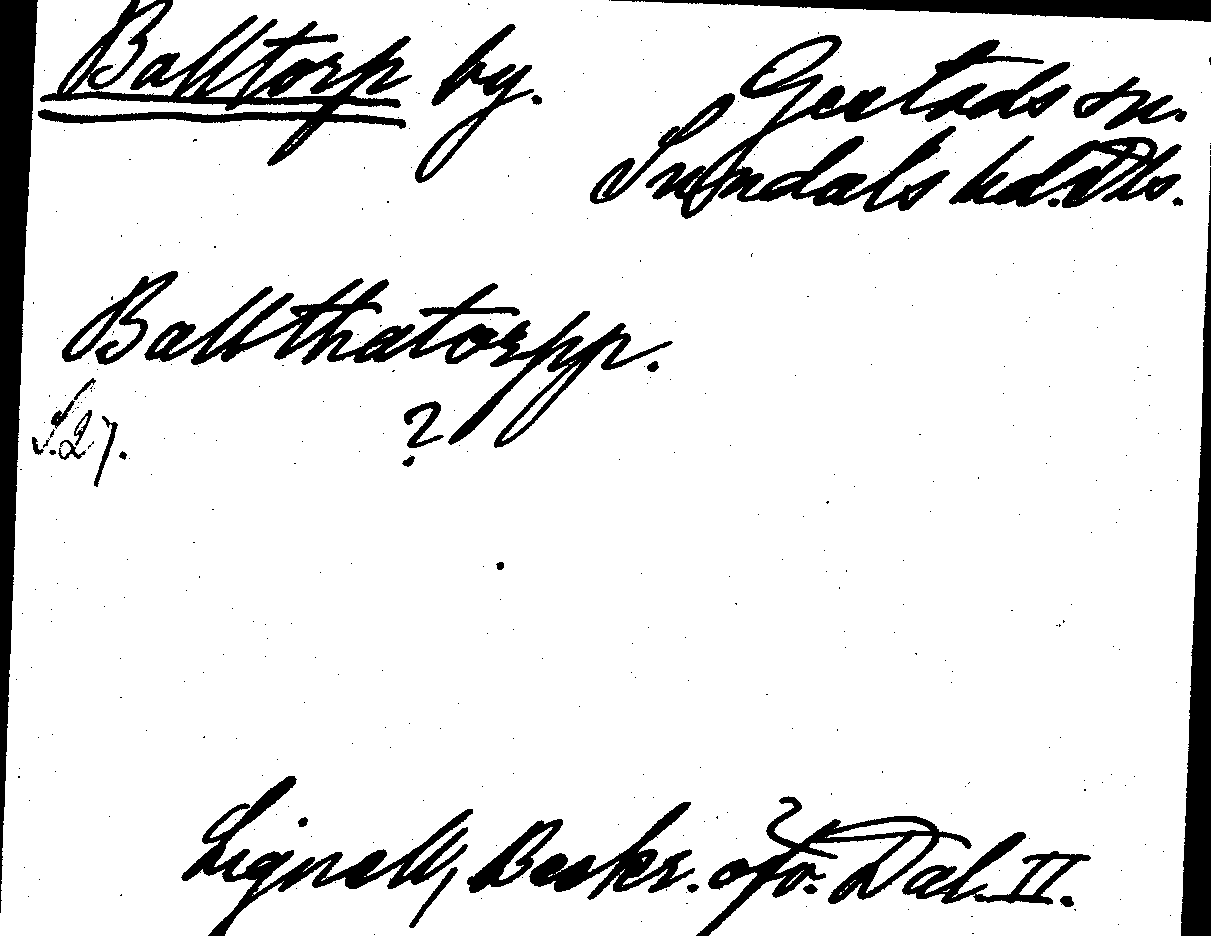 Balltorp by. Gestads sn.
Sundals hd. Dls.
Ballthatorpp.
S. 27. ?
Lignell, Beskr. öfv. Dal. II.